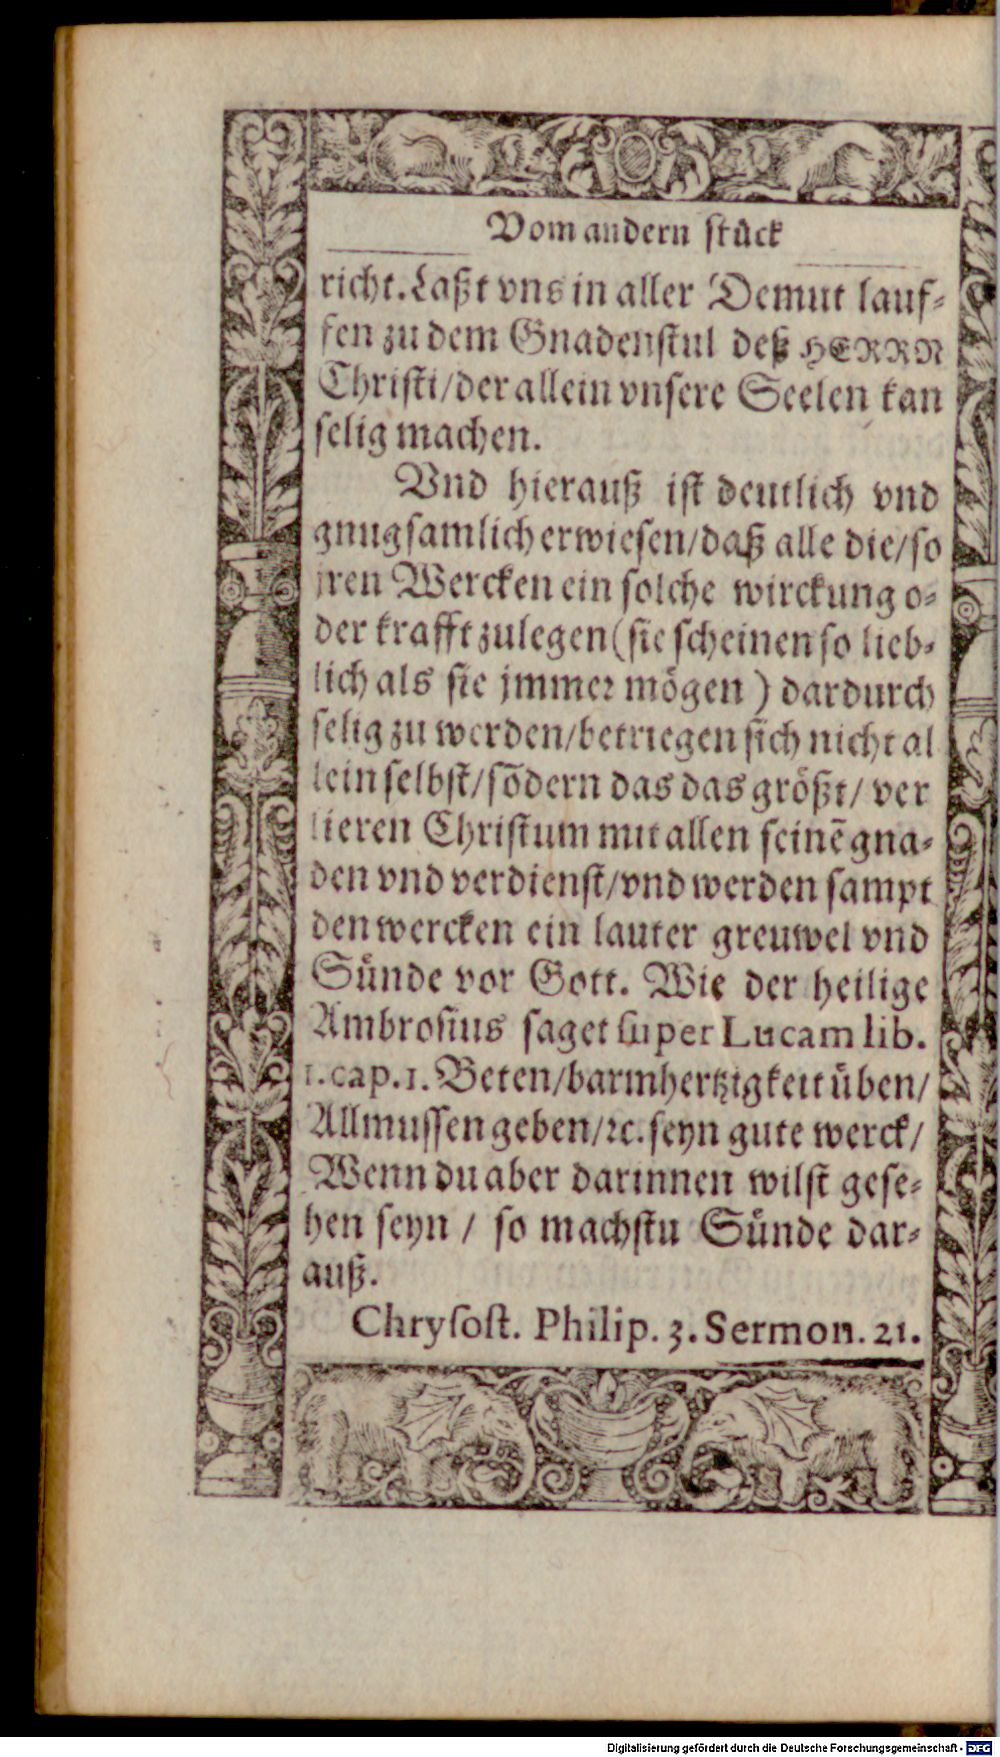 Vom andern stück
richt. Laßt vns in aller Demut lauf-
fen zu dem Gnadenstul deß HERRN
Christi/der allein vnsere Seelen kan
selig machen.
Vnd hierauß ist deutlich vnd
gnugsamlich erwiesen/daß alle die/so
jren Wercken ein solche wirckung o-
der krafft zulegen (sie scheinen so lieb-
lich als sie jmmer mögen) dardurch
selig zu werden/betriegen sich nicht al
lein selbst/sōdern das das größt/ ver
lieren Christum mit allen seinē gna-
den vnd verdienst/vnd werden sampt
den wercken ein lauter greuwel vnd
Sünde vor Gott. Wie der heilige
Ambrosius saget super Lucam lib.
1.cap.1. Beten/barmhertzigkeit üben/
Allmussen geben/ꝛc. seyn gute werck/
Wenn du aber darinnen wilst gese-
hen seyn / so machstu Sünde dar-
auß.
Chrysost. Philip. 3. Sermon. 21.
Digitalisierung gefördert durch die Deutsche Forschungsgemeinschaft - DFG